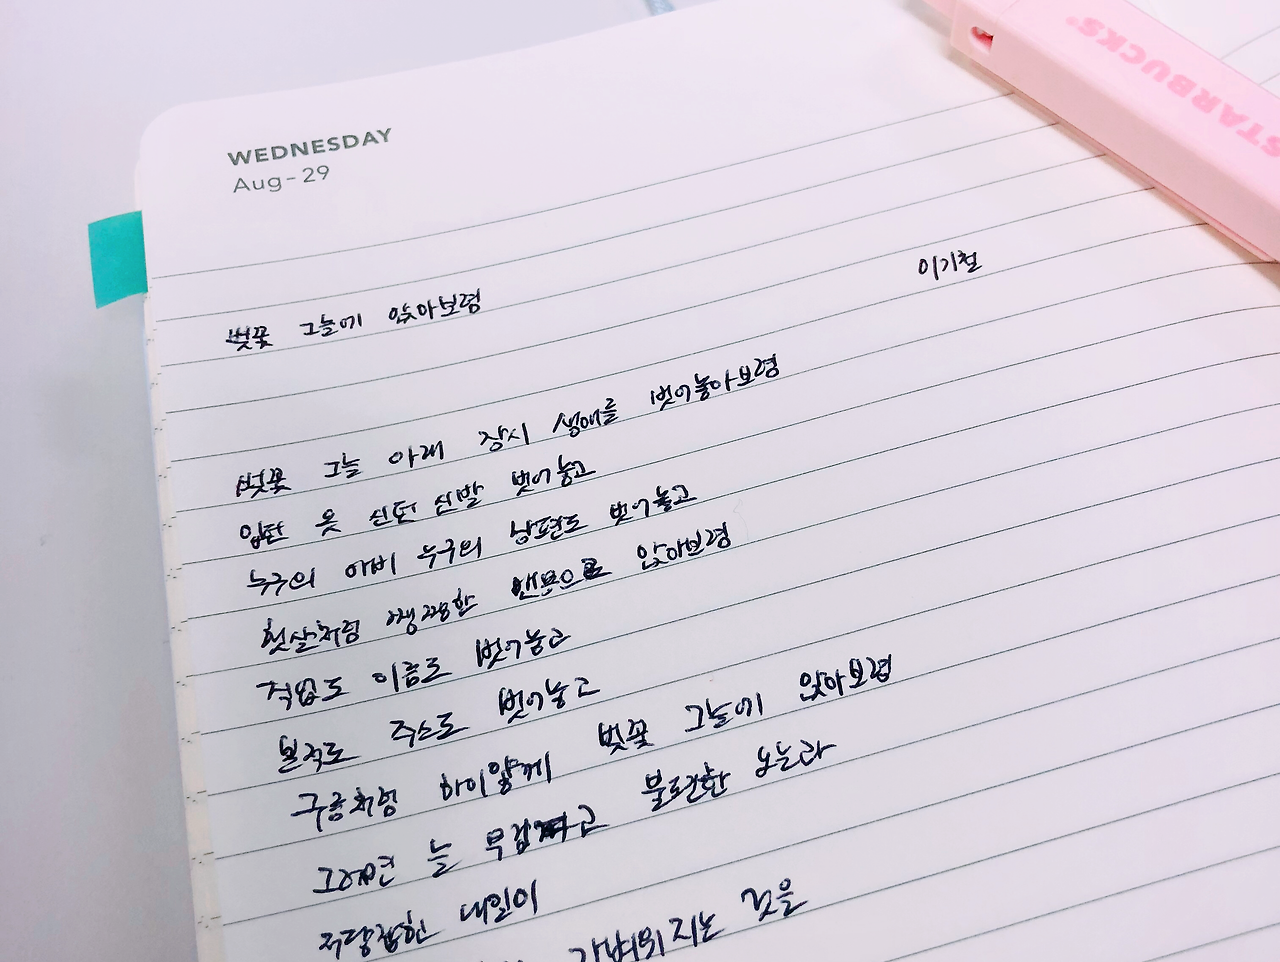 WEDNESDAY
Aug-29
STARBUCKS
이기철
벚꽃 그늘에 앉아보렴
벚꽃 그늘 아래 잠시 생애를 벗어놓아보렴
입던 옷 신던 신발 벗어놓고
누구의 아비 누구의 남편도 벗어놓고
햇살처럼 쨍쨍한 맨몸으로 앉아보렴
직업도 이름도 벗어놓고
본적도 주소도 벗어놓고
구름처럼 하이얗게 벚꽃 그늘에 앉아보렴
그러면 늘 무겁고 불편한 오늘과
저당잡힌 내일이
가벼워지는 것을